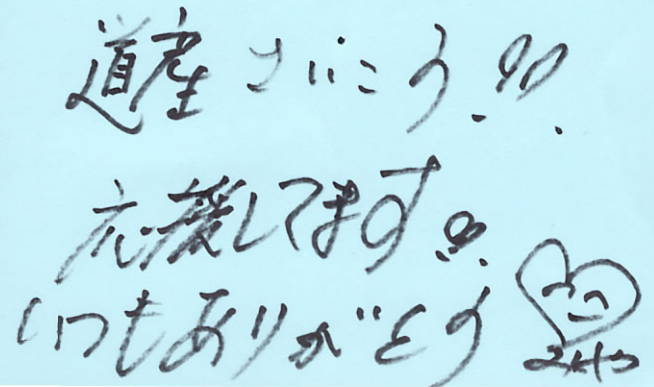 道産さいこう!!
応援してます!!
いつもありがとう